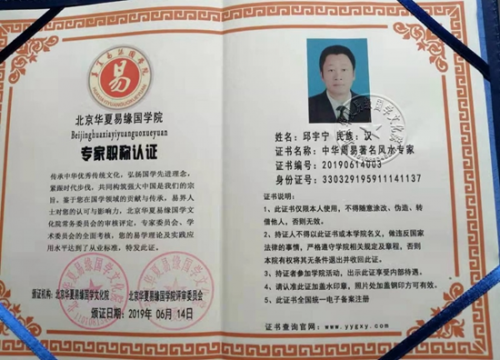 易
北京华夏易缘国学院
Beijinghuaxiayiyuanguoxueyuan
专家职称认证
传承中华优秀传统文化，弘扬国学先进理念，
紧跟时代步伐，共同构筑强大中国是我们的宗
旨。基于您在国学领域的贡献与传承，易界人
士对您的认可与影响力，北京华夏易缘国学文
化院常务委员的审核评定，专家委员会、学
术委员会的全面考核，您的易学理论及实践应
用水平达到了从业标准，特发此证。
颁证机构：北京华夏易缘国学文化院
北京华夏易缘国学院评审委员会
颁证日期：2019年 06月14日
姓名：邱宇宁 民族：汉
证书名称：中华周易著名风水专家
证书编号：20190614003
身份证号：330329195911141137
证书说明：
1、此证书仅限本人使用，不得随意涂改、伪造，转
借他人，否则无效。
2、持证人不得以此证书或本学院名义，做违反国家
法律的事情，严格遵守学院相关规定及章程，否则
本院有权将其无条件退出并收回此证。
3、持证者参加学院活动，出示此证享受内部待遇。
4、请认准此证加盖水印章，照片处加盖钢印方可有效。
5、此证书全国统一电子备案注册
证书查询官网：www.yygxy.com